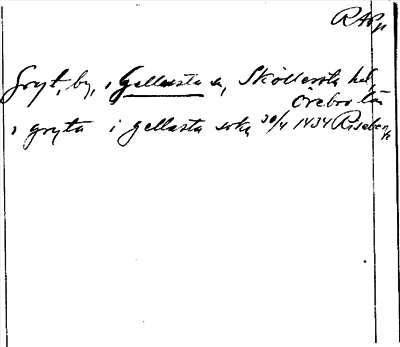 RAp
Gryt, by, i Gellersta sn, Sköllersta hd,
Örebro län
i gryta i gellasta sokn 30/4 1434 Riseberga